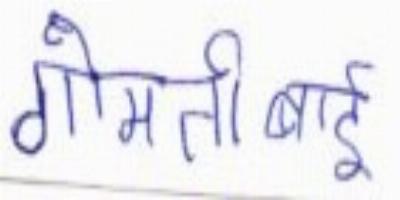 गोमती बाई